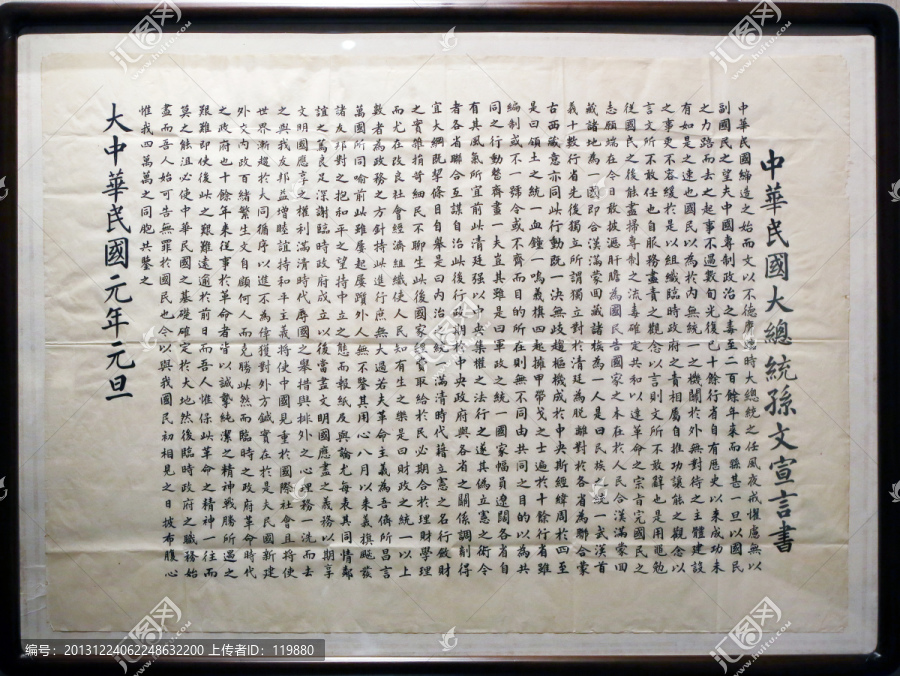 中華民國大總統孫文宣言書
中華民國締造之始而文以不德膺臨時大總統之任夙夜戒懼慮無以
副國民之望夫中國專制政治之毒至二百餘年來而滋甚一旦以國民
之力踣而去之起事不過數旬光復已十餘行省自有歷史以來成功未
有如是之速也國民以為於內無統一之機關於外無對待之主體建設
之事更不容緩於是以組織臨時政府之責相屬自推功讓能之觀念以
言文所不敢任也自服務盡責之觀念以言則文所不敢辭也是用黽勉
從國民之後能盡掃專制之流毒確定共和以達革命之宗旨完國民之
志願端在今日敢披瀝肝膽為國民告國家之本在於人民合漢滿蒙回
藏諸地為一國即合漢滿蒙回藏諸族為一人是曰民族之統一武漢首
義十數行省先後獨立所謂獨立對於清廷為脫離對於各省為聯合蒙
古西藏意亦同此行動既一決無歧趨樞機成於中央斯經緯周於四至
是曰領土之統一血鐘一鳴義旗四起擁甲帶戈之士遍於十餘行省雖
編制或不一號令或不齊而目的所在則無不同由共同之目的以為共
同之行動整齊畫一夫豈其難是曰軍政之統一國家幅員遼闊各省自
有其風氣所宜前此清廷强以中央集權之法行之遂其偽立憲之術今
者各省聯合互謀自治此後行政期於中央政府與各省之關係調劑得
宜大綱既挈條目自舉是曰內治之統一滿清時代藉立憲之名行斂財
之實雜捐苛細民不聊生此後國家經費取給於民必期合於理財學理
而尤在改良社會經濟組織使人民知有生之樂是曰財政之統一以上
數者為政務之方針持此進行庶無大過若夫革命主義為吾儕所昌言
萬國所同喻前此雖屢起屢躓外人無不鑒其用心八月以來義旗飈發
諸友邦對之抱和平之望持中立之態而報紙及輿論尤每表其同情鄰
誼之篤良足深謝臨時政府成立以後當盡文明國應盡之義務以期享
文明國應享之權利滿清時代辱國之舉措與排外之心理務一洗而去
之與我友邦益增睦誼持和平主義將使中國見重於國際社會且將使
世界漸趨於大同循序以進不為倖獲對外方鍼實在於是夫民國新建
外交內政百緒繁生文自顧何人而克勝此然而臨時之政府革命時代
之政府也十餘年來從事於革命者皆以誠摯純潔之精神戰勝所遇之
艱難即使後此之艱難遠逾於前日而吾人惟保此革命之精神一往而
莫之能沮必使中華民國之基礎確定於大地然後臨時政府之職務始
盡而吾人始可告無罪於國民也今以與我國民初相見之日披布腹心
惟我四萬萬之同胞共鑒之
大中華民國元年元旦
编号:20131224062248632200 上传者ID: 119880